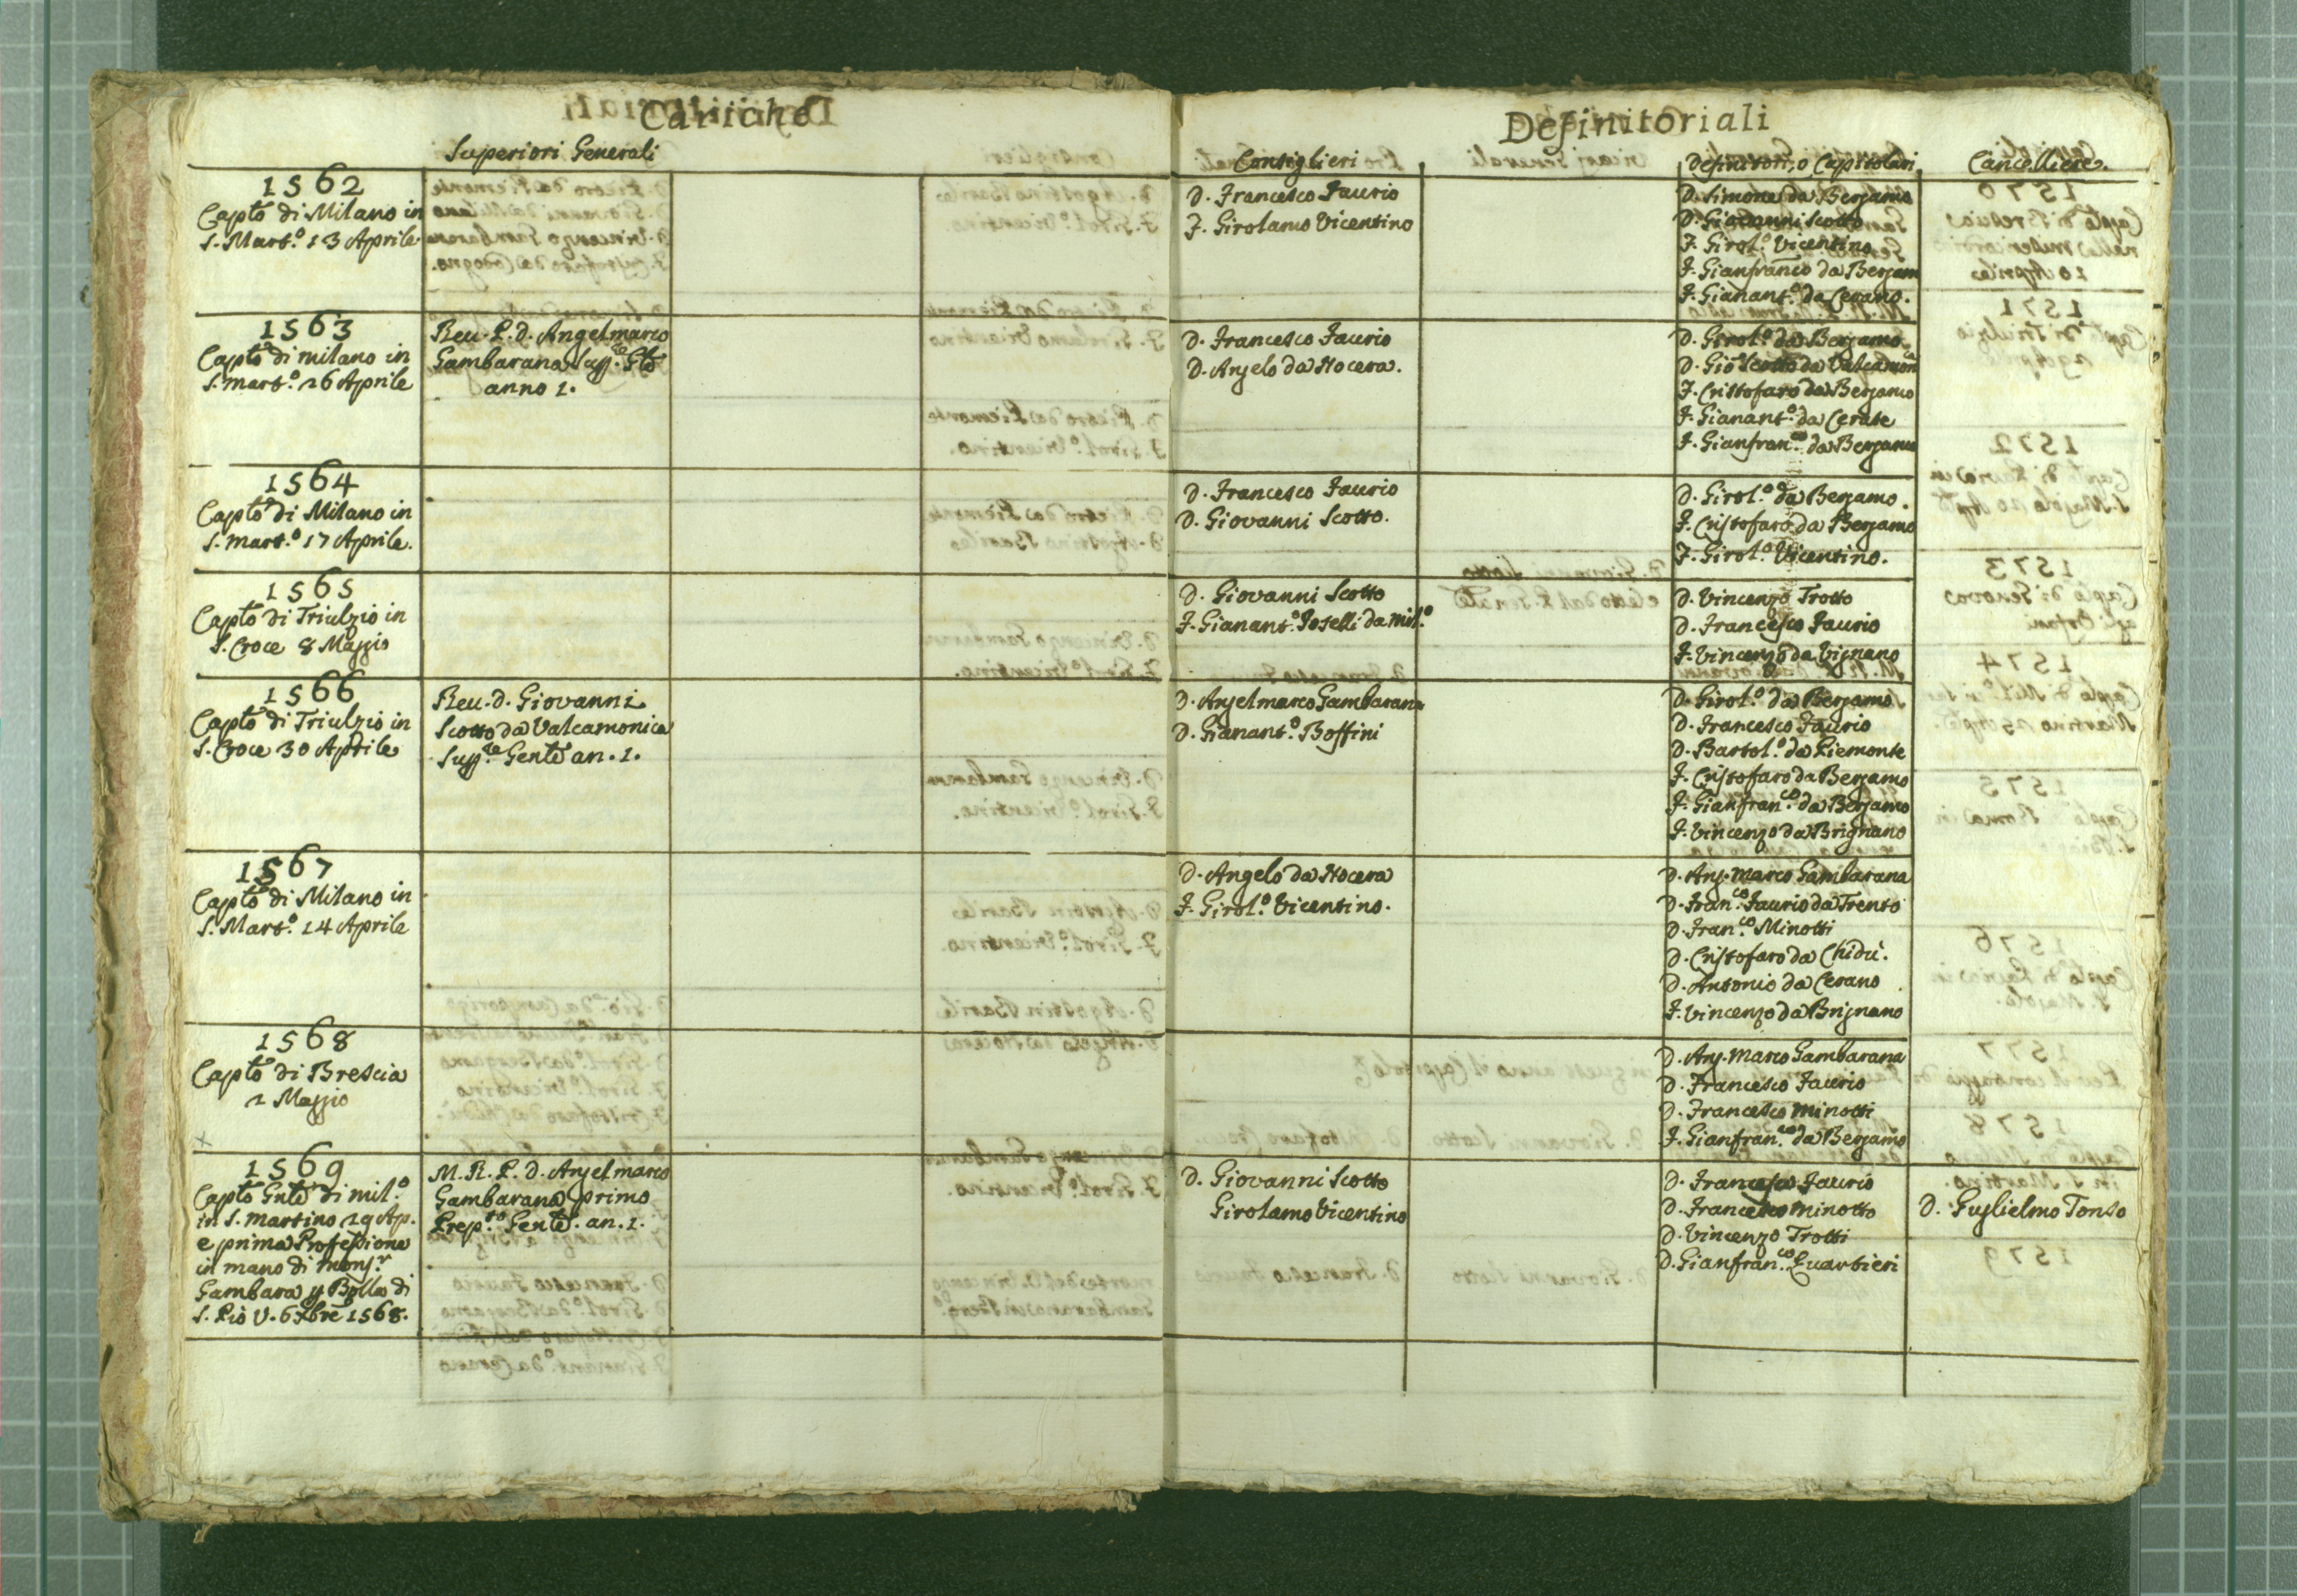 Cariche
Definitoriali
Superiori Generali
Consiglieri
Definitori, o Capitolari
Cancelliere.
1562
Capto di Milano in
S. Mart.o 13 Aprile.
D. Francesco Faurio
F. Girolamo Vicentino
D. Simone da Bergamo
D. Giovanni Scotto
F. Girol.o Vicentino
F. Gianfranco da Bergam
F. Gianant.o da Cerano.
1563
Capto di milano in
S. Mart.o 26 Aprile
Reu. P. d. Angelmarco
Gambarana Supp.e Gle
anno 1.
D. Francesco Faurio
D. Angelo da Nocera.
D. Girol.o da Bergamo
D. Gio Scotto da Valcamon.a
F. Cristofaro da Bergamo
F. Gianant.o da Cerate
F. Gianfran.co da Bergamo
1564
Capto di Milano in
S. Mart.o 17 Aprile.
D. Francesco Faurio
D. Giovanni Scotto.
D. Girol.o da Bergamo.
F. Cristofaro da Bergamo
F. Girol.o Vicentino.
1565
Capto di Triulzio in
S. Croce 8 Maggio
D. Giovanni Scotto
F. Gianant.o Foselli da Mil.o
D. Vincenzo Trotto
D. Francesco Faurio
F. Vincenzo da Vignano
1566
Capto di Triulzio in
S. Croce 30 Aprile
Reu. d. Giovanni
Scotto da Valcamonica
Supp.e Gente an. 1.
D. Angelmarco Gambarana
D. Gianant.o Boffini
D. Girol.o da Bergamo
D. Francesco Faurio
D. Bartol.o da Piemonte
F. Cristofaro da Bergamo
F. Gianfran.co da Bergamo
F. Vincenzo da Brignano
1567
Capto di Milano in
S. Mart.o 14 Aprile
D. Angelo da Nocera
F. Girol.o Vicentino.
D. Ang. Marco Gambarana
D. Fran.co Faurio da Trento
D. Fran.co Minotti
D. Cristofaro da Chidu.
D. Antonio da Cerano
F. Vincenzo da Brignano
1568
Capto di Brescia
2 Maggio
D. Ang. Marco Gambarana
D. Francesco Faurio
D. Francesco Minotti
F. Gianfran.co da Bergamo
1569
Capto Gnle di Mil.o
in S. Martino 29 Ap.
e prima Professione
in mano di Mons.r
Gambara p Bolla di
S. Pio V. 6 Xbre 1568.
M. R. P. D. Angelmarco
Gambarana primo
Prep.to Gente. an. 1.
D. Giovanni Scotto
Girolamo Vicentino
D. Francesco Faurio
D. Francesco Minotto
D. Vincenzo Trotti
D. Gianfran.co Quartieri
D. Guglielmo Tonso